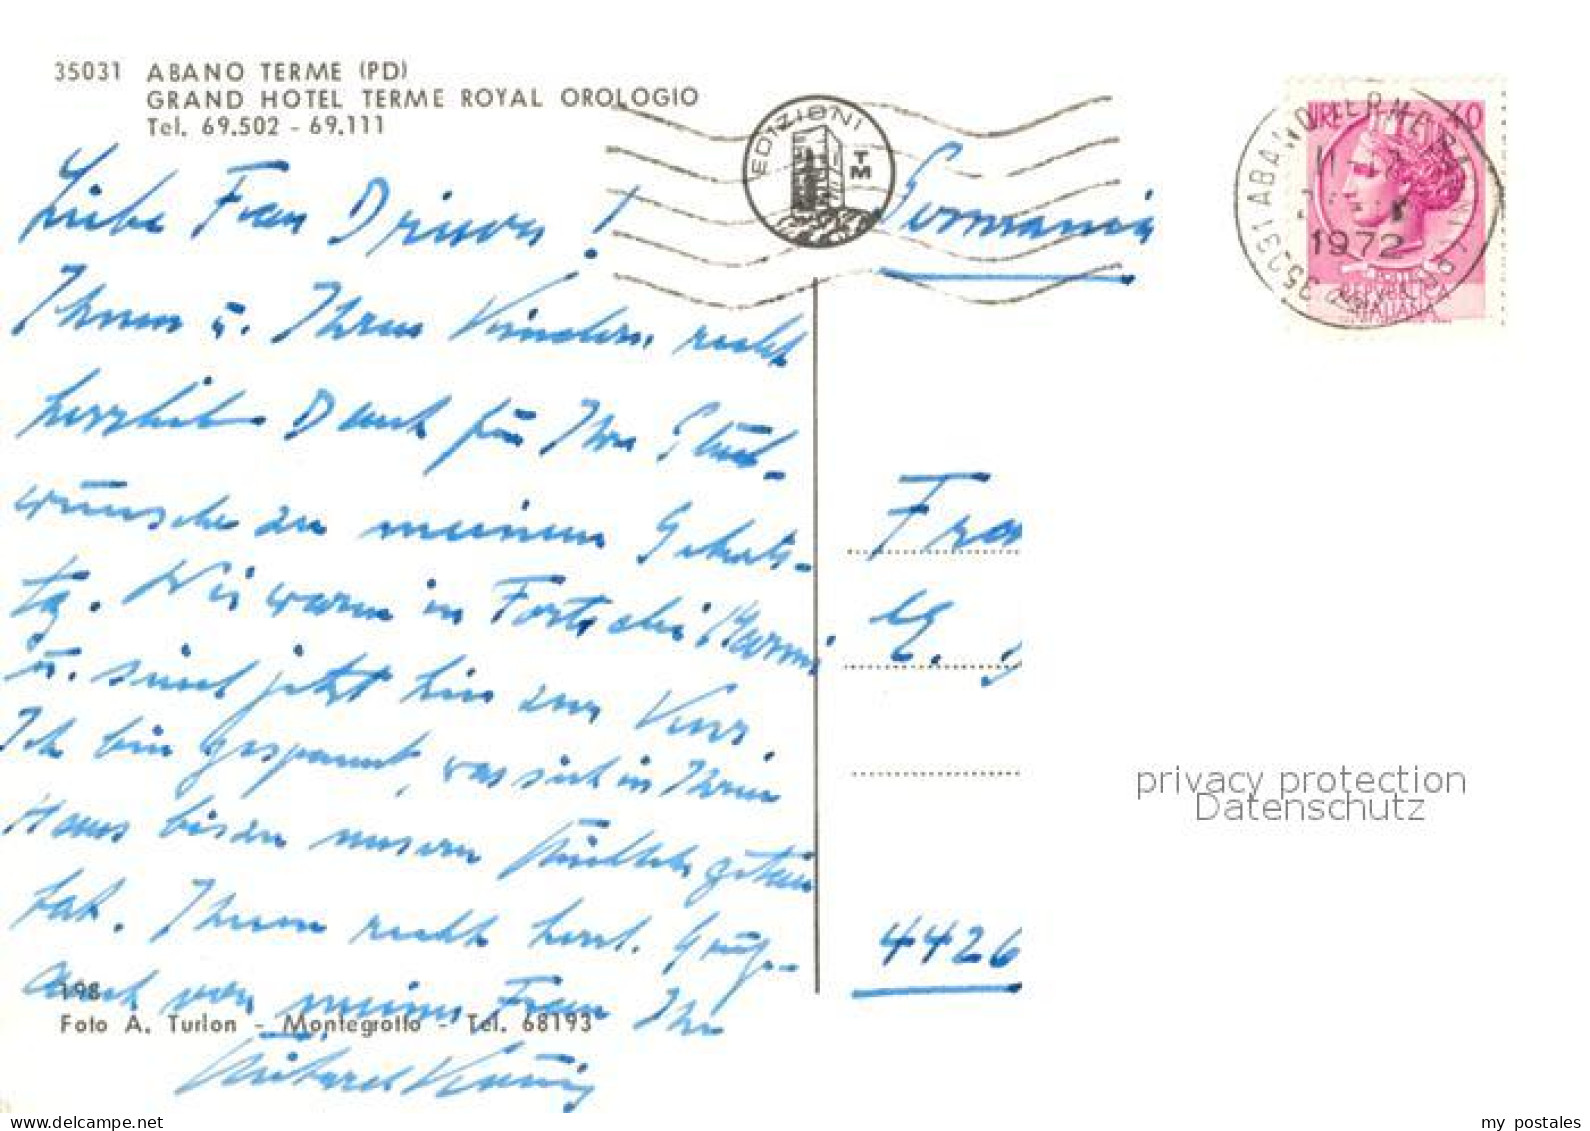 35031 ABANO TERME (PD)
GRAND HOTEL TERME ROYAL OROLOGIO
Tel. 69.502 - 69.111
EDIZIONI
TM
Germania
1972
REPUBBLICA
ITALIANA
Liebe Frau
Ihnen u. Ihren Kindern recht
herzlich Dank für Ihre Glück-
wünsche zu meinem Geburts-
tg. Wir waren in Forte dei Marmi
u. sind jetzt hier zur Kur.
Ich bin gespannt, was sich in Ihrem
Haus bis zu unserer getan
hat. Ihnen recht herzl. Grüße
auch von meiner Frau Ihr
Fra
4426
198
Foto A. Turlon - Montegrotto - Tel. 68193
privacy protection
Datenschutz
my postales
www.delcampe.net